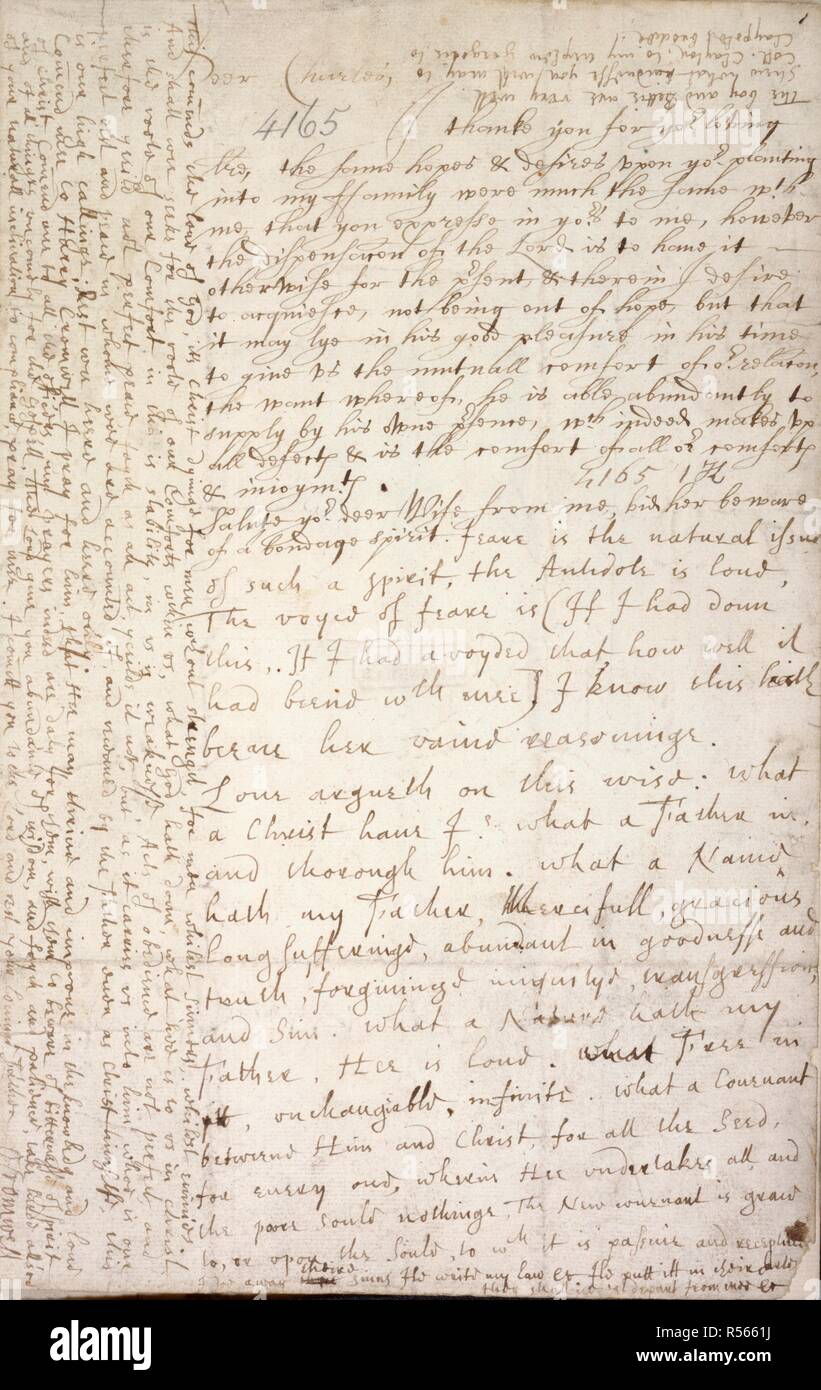 1
Deer Charles,
4165
I thanke you for yor. loving
lre, the same hopes & desires vpon yor. planting
into my ffamily were much the same wth.
me, that you expresse in yors to me, however
the dispensacon of the Lord is to haue it
otherwise for the prsent, & therein I desire
to acquiesce, not being out of hope, but that
it may lye in his good pleasure in his time
to giue vs the mutuall comfort of or. relation,
the want whereof, he is able abundantly to
supply by his owne prsence, wch indeed makes vp
all defects & is the comfort of all or comforts
& inioymts
4165
Salute yor. deer Wife from me, bid her beware
of a bondage spirit. feare is the natural issue
of such a spirit, the Antidote is loue,
The voyce of feare is (If I had donn
this, If I had avoyded that how well it
had beene wth mee) I know this hath
beene her vaine reasoninge.
Loue argueth on this wise: what
a Christ haue I: what a Father in,
and thorough him. what a Name
hath my Father, Mercifull, gracious
long sufferinge, abundant in goodnesse and
truth, forgivinge iniquitye, transgression,
and Sin. what a Nature hath my
Father, Hee is loue. Free in
itt, vnchangiable, infinite. what a Couenant
betweene Him and Christ, for all the Seed,
for euery one, wherin Hee vndertakes all, and
the poore Soule nothinge. The New couenant is grace
to, or vpon the Soule, to wch it is passiue and receptiue
away sinns Ile write my law &c Ile putt itt in
they shall not depart from mee &c
This comends the loue of God, its Christ dyinge for men without strength, for men whilest sinners, whilest enimies.
And shall wee seeke for the roote of our Comforts within vs, what God hath done, what hee is to vs in Christ
is the roote of our Comfort, in this is stability, in vs is weaknesse. Acts of obedience are not perfect, and
therfore yeild not perfect peace. fayth as an act yeilds it not, but as it carries vs into him whoe is our
perfect rest and peace in whome wee are accounted of, and receiued by the Father euen as Christ himselfe, this
is our high callinge. Rest wee heere and heere only.
Comend mee to Harry Cromwell I pray for him, that Hee may thriue and improue in the knowledg and loue
of Christ. Comend mee to all the officers my prayers indeed are daly for them, wish them to beware of bitternesse of spirit
and of all things vncomely for the Gospell, the Lord giue you abundance of wisdom, and fayth and patience, take heed alsoe
of your naturall inclination to compliance, pray for mee. I comitt you to the Lord and rest your louinge Father
O Cromwell
The boy and Bettie are very well.
Shew what kindnesse you well may to
Coll. Clayton, to my nephew Gregorie to
Claypoles brother